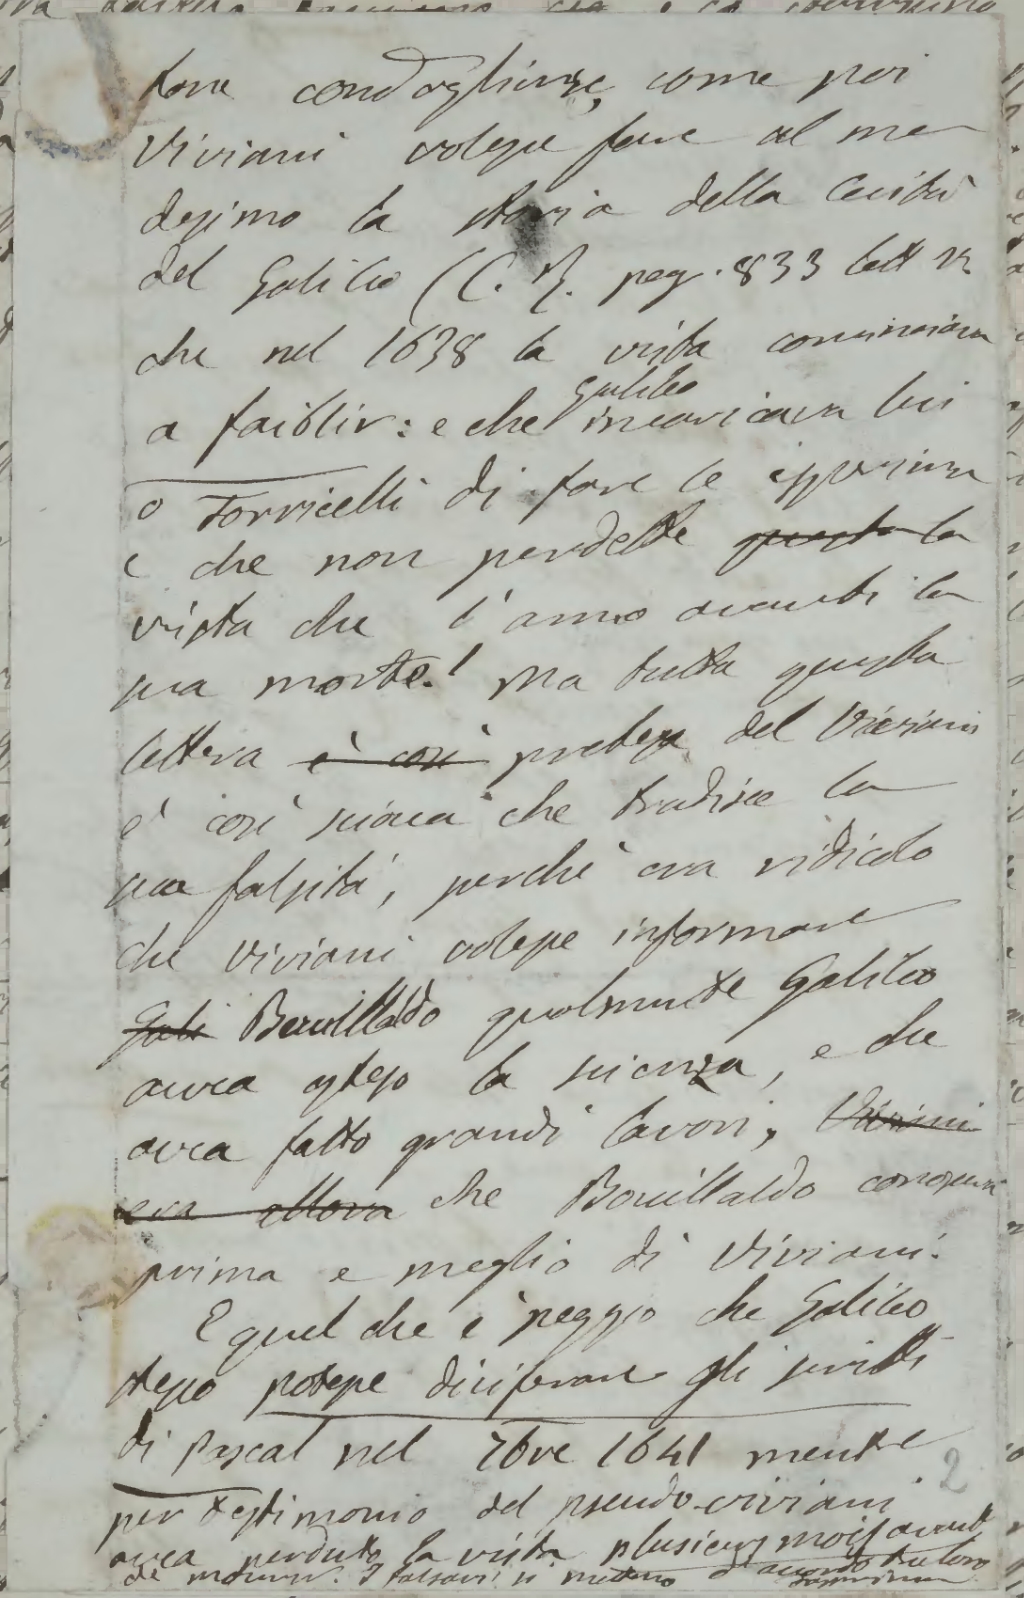 fare condoglianze, come poi
Viviani volesse fare al me
desimo la storia della Cecità
del Galileo (C. R. pag. 833 lett
che nel 1638 la vista cominciava
a faiblir: e che Galileo incaricava lui
o Torricelli di fare le esperienze
e che non perdette questa la
vista che l'anno avanti la
sua morte! Ma tutta questa
lettera è così pretesa del Viviani
e' così sciocca che tradisce la
sua falsità, perchè era ridicolo
che Viviani volesse informare
Gali Bouillaldo qualmente Galileo
avea esteso la scienza, e che
avea fatto grandi lavori, Viviani
era allora che Bouillaldo conosceva
prima e meglio di Viviani.
E quel che è peggio che Galileo
stesso potesse diciferare gli scritti
di Pascal nel 7bre 1641 mentre
per testimonio del pseudo-viviani
avea perduto la vista plusieurs mois avant
de mourir. I falsari si mettano d'accordo tra loro